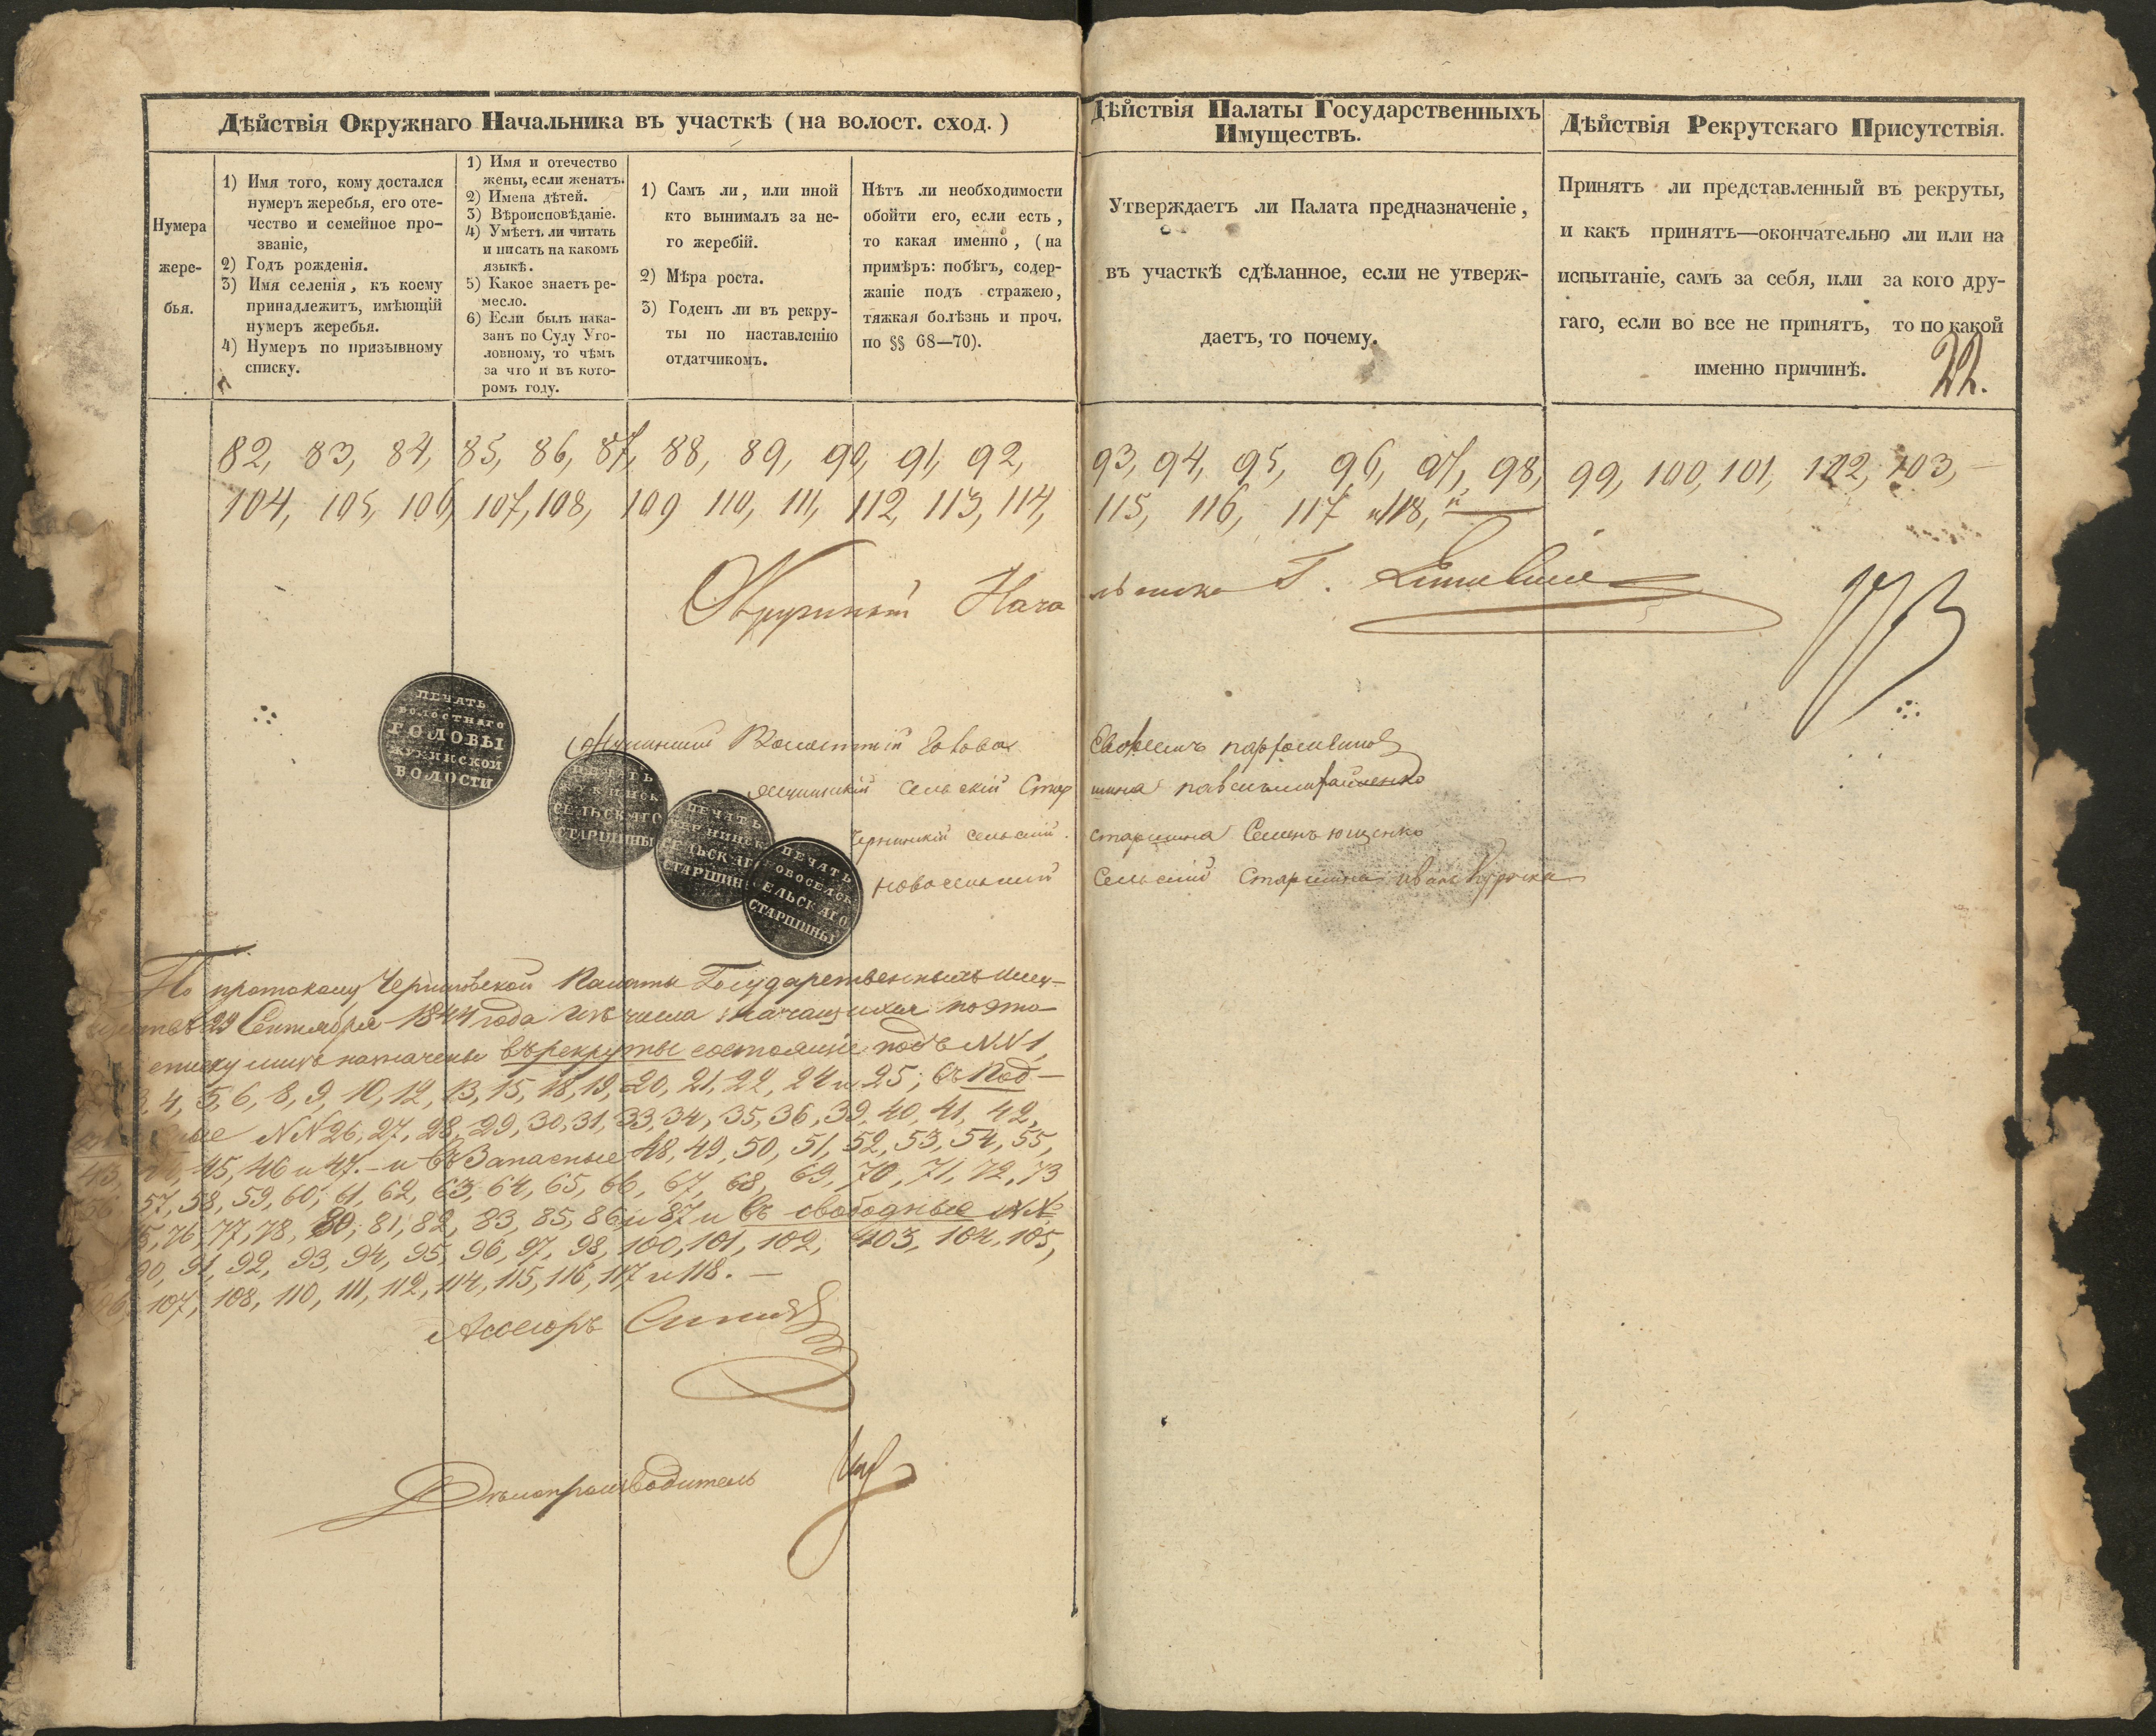 Дѣйствія Окружнаго Начальника въ участкѣ (на волост. сход.)
Нумера
жере-
бья.
1) Имя того, кому достался
нумеръ жеребья, его оте-
чество и семейное про-
званіе,
2) Годъ рожденія.
3) Имя селенія, къ коему
принадлежитъ, имѣющій
нумеръ жеребья.
4) Нумеръ по призывному
списку.
1) Имя и отечество
жены, если женатъ.
2) Имена дѣтей.
3) Вѣроисповѣданіе.
4) Умѣетъ ли читать
и писать на какомъ
языкѣ.
5) Какое знаетъ ре-
месло.
6) Если былъ нака-
занъ по Суду Уго-
ловному, то чѣмъ
за что и въ кото-
ромъ году.
1) Самъ ли, или иной
кто вынималъ за не-
го жеребій.
2) Мѣра роста.
3) Годенъ ли въ рекру-
ты по наставленію
отдатчикомъ.
Нѣтъ ли необходимости
обойти его, если есть,
то какая именно, (на
примѣръ: побѣгъ, содер-
жаніе подъ стражею,
тяжкая болѣзнь и проч.
по §§ 68—70).
Дѣйствія Палаты Государственныхъ
Имуществъ.
Утверждаетъ ли Палата предназначеніе,
въ участкѣ сдѣланное, если не утверж-
даетъ, то почему.
Дѣйствія Рекрутскаго Присутствія.
Принятъ ли представленный въ рекруты,
и какъ принятъ—окончательно ли или на
испытаніе, самъ за себя, или за кого дру-
гаго, если во все не принятъ, то по какой
именно причинѣ.
22.
82, 83, 84, 85, 86, 87, 88, 89, 90, 91, 92, 93, 94, 95, 96, 97, 98, 99, 100, 101, 102, 103, —
104, 105, 106, 107, 108, 109 110, 111, 112, 113, 114, 115, 116, 117 и 118,
Окружный Начальникъ Г.
ПЕЧАТЬ
ВОЛОСТНАГО
ГОЛОВЫ
ЖУКИНСКОЙ
ВОЛОСТИ
Волостный Голова
ПЕЧАТЬ
СЕЛЬСКАГО
СТАРШИНЫ
Сельскій Старшина
ПЕЧАТЬ
СЕЛЬСКАГО
СТАРШИНЫ
Чернинскій Сельскій Старшина Семенъ Ющенко
ПЕЧАТЬ
НОВОСЕЛЬСК
СЕЛЬСКАГО
СТАРШИНЫ
Новоселький Сельскій Старшина Иванъ Курочка
По протоколу Черниговской Палаты Государственныхъ Иму-
29 Сентября 1844 года изъ числа значащихся по это-
списку лицъ назначены въ рекруты состоящіе подъ NN 1,
4, 5, 6, 8, 9, 10, 12, 13, 15, 18, 19, 20, 21, 22, 24 и 25; въ Под-
NN 26, 27, 28, 29, 30, 31, 33, 34, 35, 36, 39, 40, 41, 42,
43, 44, 45, 46 и 47. – и въ Запасные 48, 49, 50, 51, 52, 53, 54, 55,
56 57, 58, 59, 60, 61, 62, 63, 64, 65, 66, 67, 68, 69, 70, 71, 72, 73
75, 76, 77, 78, 80, 81, 82, 83, 85, 86 и 87 и въ свободные NN
90, 91, 92, 93, 94, 95, 96, 97, 98, 100, 101, 102, 103, 104, 105,
106, 107, 108, 110, 111, 112, 114, 115, 116, 117 и 118. —
Ассесоръ
Дѣлопроизводитель